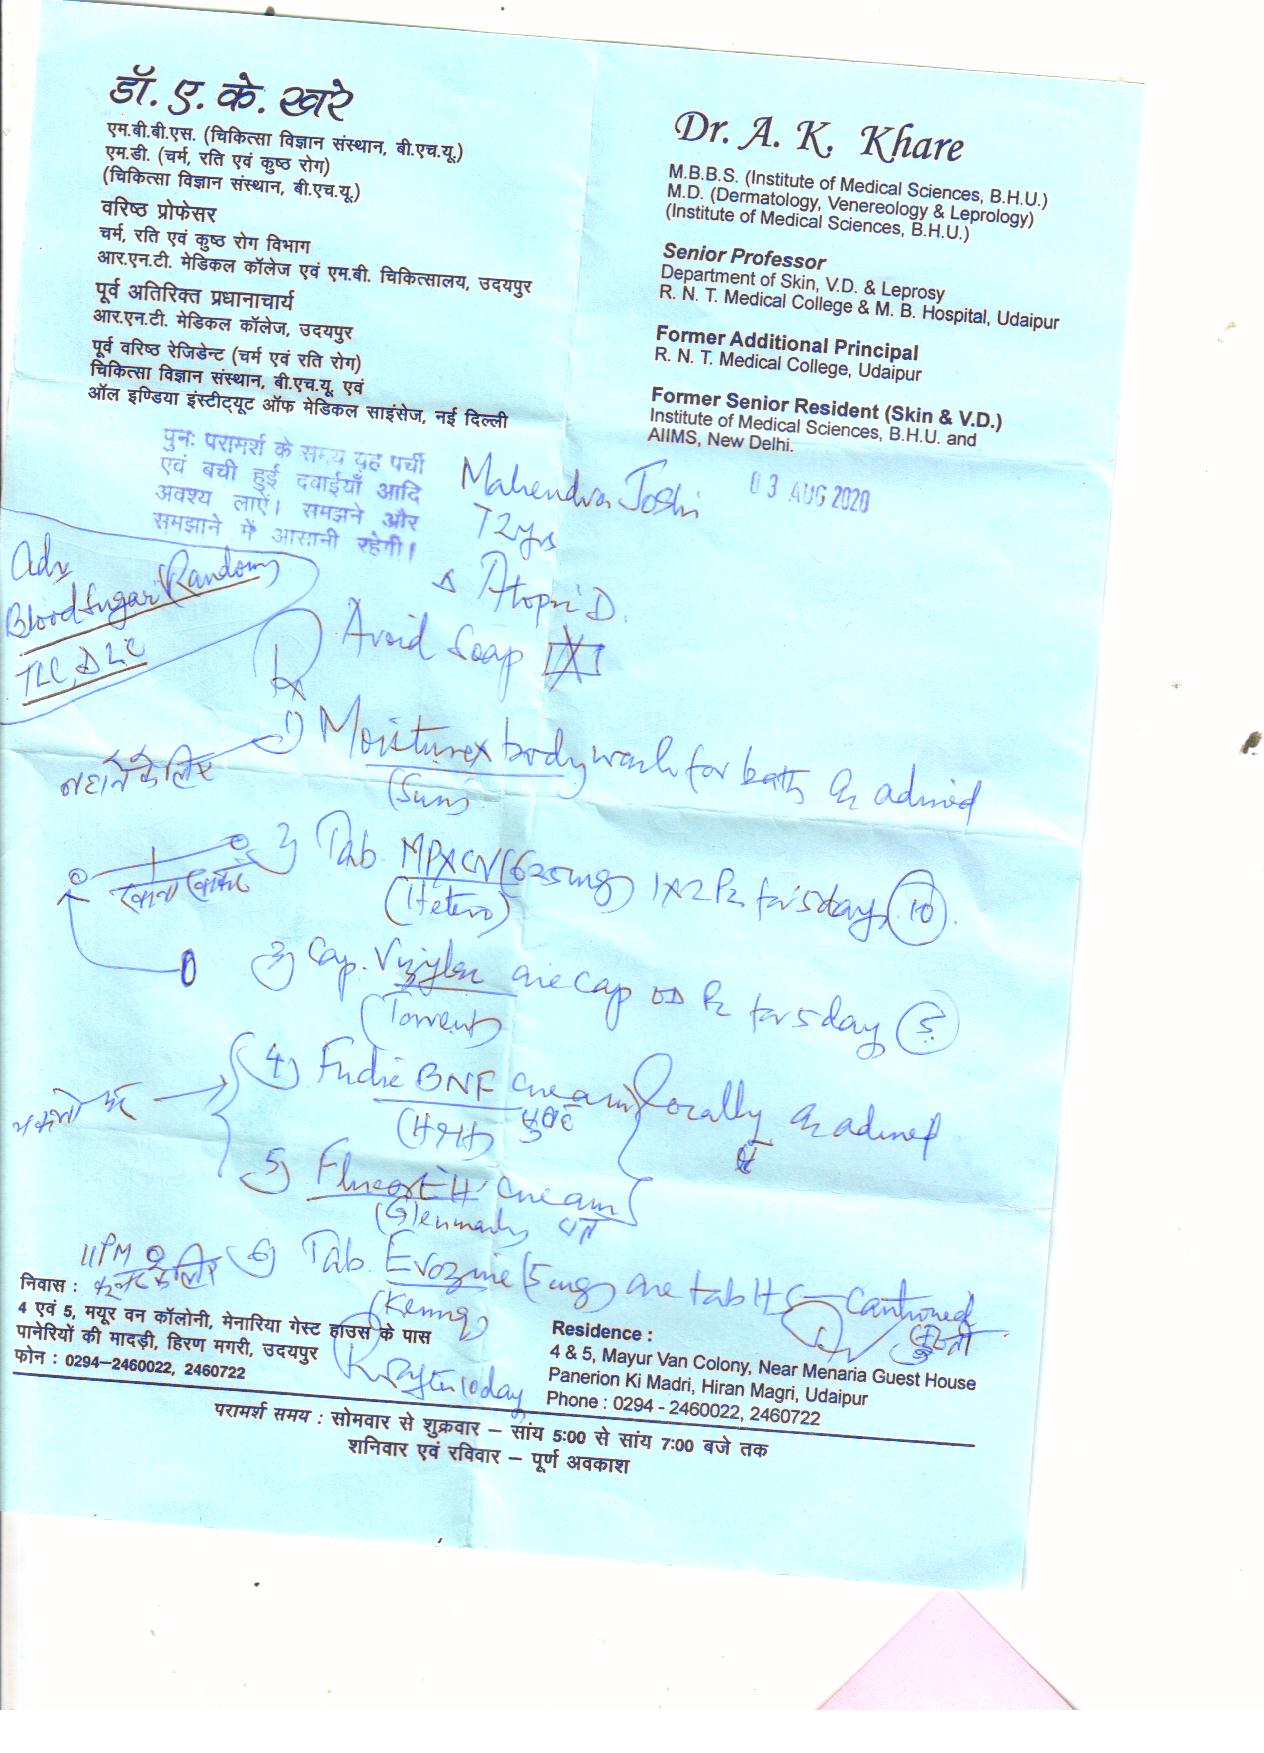 डॉ. ए. के. खरे
एम.बी.बी.एस. (चिकित्सा विज्ञान संस्थान, बी.एच.यू.)
एम.डी. (चर्म, रति एवं कुष्ठ रोग)
(चिकित्सा विज्ञान संस्थान, बी.एच.यू.)
वरिष्ठ प्रोफेसर
चर्म, रति एवं कुष्ठ रोग विभाग
आर.एन.टी. मेडिकल कॉलेज एवं एम.बी. चिकित्सालय, उदयपुर
पूर्व अतिरिक्त प्रधानाचार्य
आर.एन.टी. मेडिकल कॉलेज, उदयपुर
पूर्व वरिष्ठ रेजिडेन्ट (चर्म एवं रति रोग)
चिकित्सा विज्ञान संस्थान, बी.एच.यू. एवं
ऑल इण्डिया इंस्टीट्यूट ऑफ मेडिकल साइंसेज, नई दिल्ली
Dr. A. K. Khare
M.B.B.S. (Institute of Medical Sciences, B.H.U.)
M.D. (Dermatology, Venereology & Leprology)
(Institute of Medical Sciences, B.H.U.)
Senior Professor
Department of Skin, V.D. & Leprosy
R. N. T. Medical College & M. B. Hospital, Udaipur
Former Additional Principal
R. N. T. Medical College, Udaipur
Former Senior Resident (Skin & V.D.)
Institute of Medical Sciences, B.H.U. and
AIIMS, New Delhi.
पुनः परामर्श के समय यह पर्ची
एवं बची हुई दवाईयाँ आदि
अवश्य लाऐं। समझने और
समझाने में आसानी रहेगी।
Mahendra Joshi
03 AUG 2020
72yrs
Adv
Blood Sugar (Random)
TLC, DLC
Δ Atopic D.
Avoid Soap
Rx
1) Moisturex body wash for bath as advised
(Sun)
नहाने के लिए
2) Tab. MPXCV (625mg) 1x2 Pc for 5 day (10)
(Hetero)
3) Cap. Vizylac one cap OD Pc for 5 day (5)
(Torrent)
4) Fudic BNF cream locally as advised
5) Flucort 'H' cream
(Glenmark)
11 PM
6) Tab. Evozine (5mg) one tab HS
R after 10 day
निवास :
4 एवं 5, मयूर वन कॉलोनी, मेनारिया गेस्ट हाउस के पास
पानेरियों की मादड़ी, हिरण मगरी, उदयपुर
फोन : 0294-2460022, 2460722
Residence :
4 & 5, Mayur Van Colony, Near Menaria Guest House
Panerion Ki Madri, Hiran Magri, Udaipur
Phone : 0294 - 2460022, 2460722
परामर्श समय : सोमवार से शुक्रवार – सांय 5:00 से सांय 7:00 बजे तक
शनिवार एवं रविवार – पूर्ण अवकाश